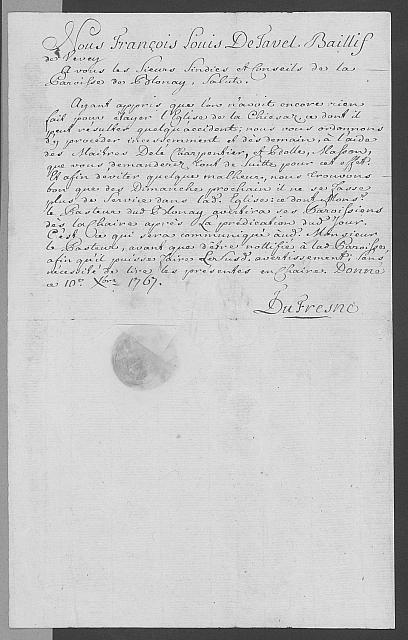 Nous François Louis De Tavel Baillif
de Vevey
A vous les Sieurs Sindics et Conseils de la
Paroisse de Blonay, Salut.
Ayant appris que l'on n'avoit encore rien
fait pour étayer l'Eglise de la Chiesaz, ce dont il
peut resulter quelqu'accident; nous vous ordonnons
d'y procéder incessemment et dès demain, à l'aide
des Maitres Dolé Charpentier, et Masson,
que vous demanderez tout de suitte pour cet effet.
Et afin d'eviter quelque malheur, nous trouvons
bon que des Dimanche prochain il ne se fasse
plus de Service dans lad. Eglise: ce dont Monsr.
le Pasteur dud. Blonay avertira ses Paroissiens
dès la Chaire après la prédication dud. jour
C'est Ce qui sera communiqué aud. Monsieur
le Pasteur, avant que d'être notiffié à lad. Paroisse
afin qu'il puisse faire led. avertissement; sans
necessité de lire les présentes en Chaire. Donné
ce 10e. Xbre. 1767.
DuFresne